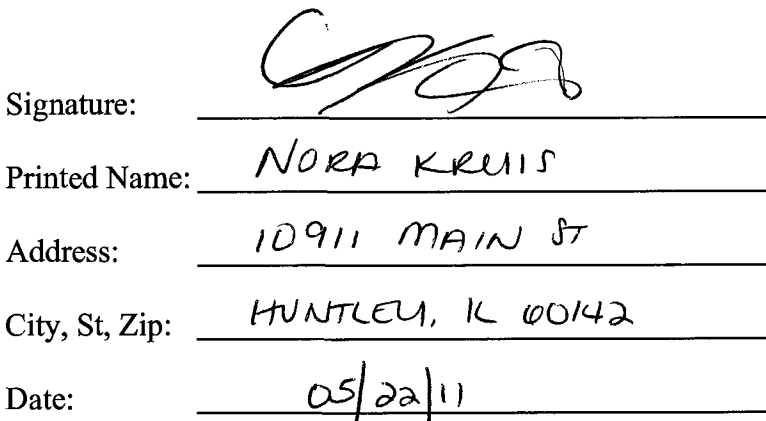 Signature:
Printed Name: NORA KRUIS
Address: 10911 MAIN ST
City, St, Zip: HUNTLEY, IL 60142
Date: 05/22/11